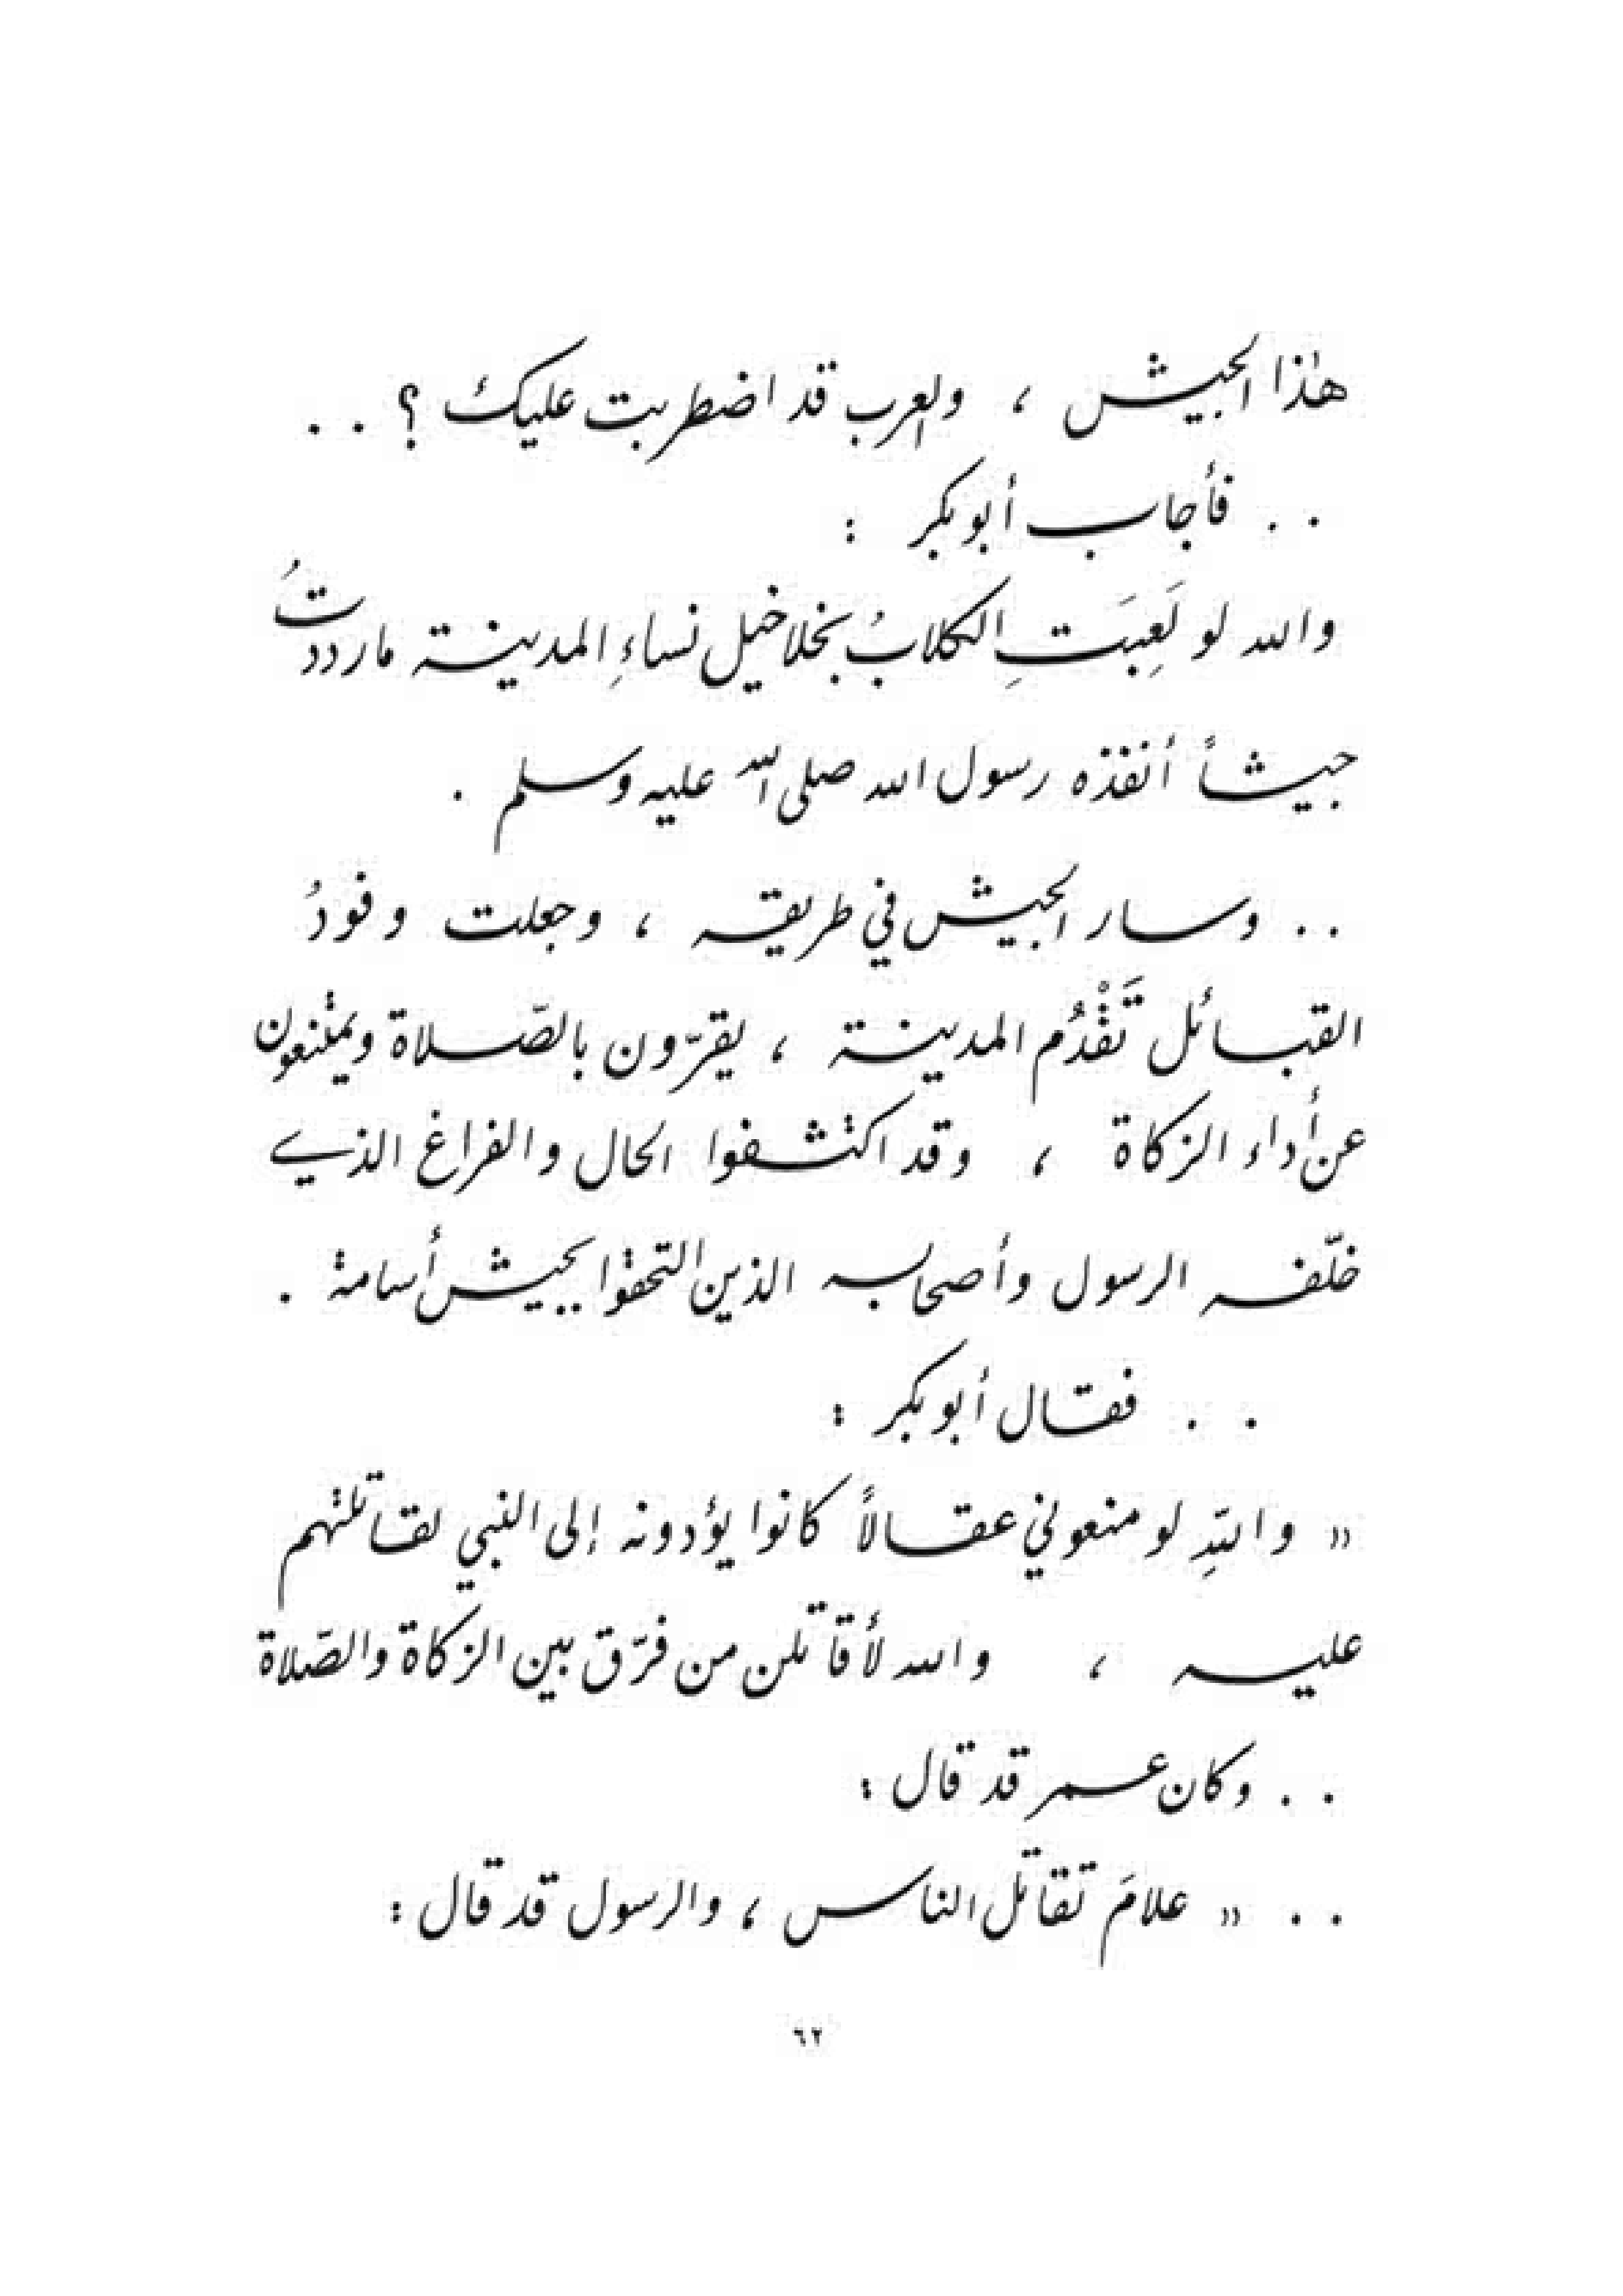 هٰذا الجيش ، والعرب قد اضطربت عليك ؟ . .
. . فأجاب أبو بكر :
والله لو لَعِبَتِ الكلابُ بخلاخيل نساءِ المدينة ما رددتُ
جيشاً أنفذه رسول الله صلى الله عليه وسلم .
. . وسار الجيش في طريقه ، وجعلت وفودُ
القبائل تَقْدُم المدينة ، يقرّون بالصّلاة ويمتنعون
عن أداء الزكاة ، وقد اكتشفوا الحال والفراغ الذي
خلّفه الرسول وأصحابه الذين التحقوا بجيش أسامة .
. . فقال أبو بكر :
« واللهِ لو منعوني عقالاً كانوا يؤدونه إلى النبي لقاتلتهم
عليه ، والله لأقاتلن من فرّق بين الزكاة والصّلاة
. . وكان عمر قد قال :
. . « علامَ تقاتل الناس ، والرسول قد قال :
٦٢